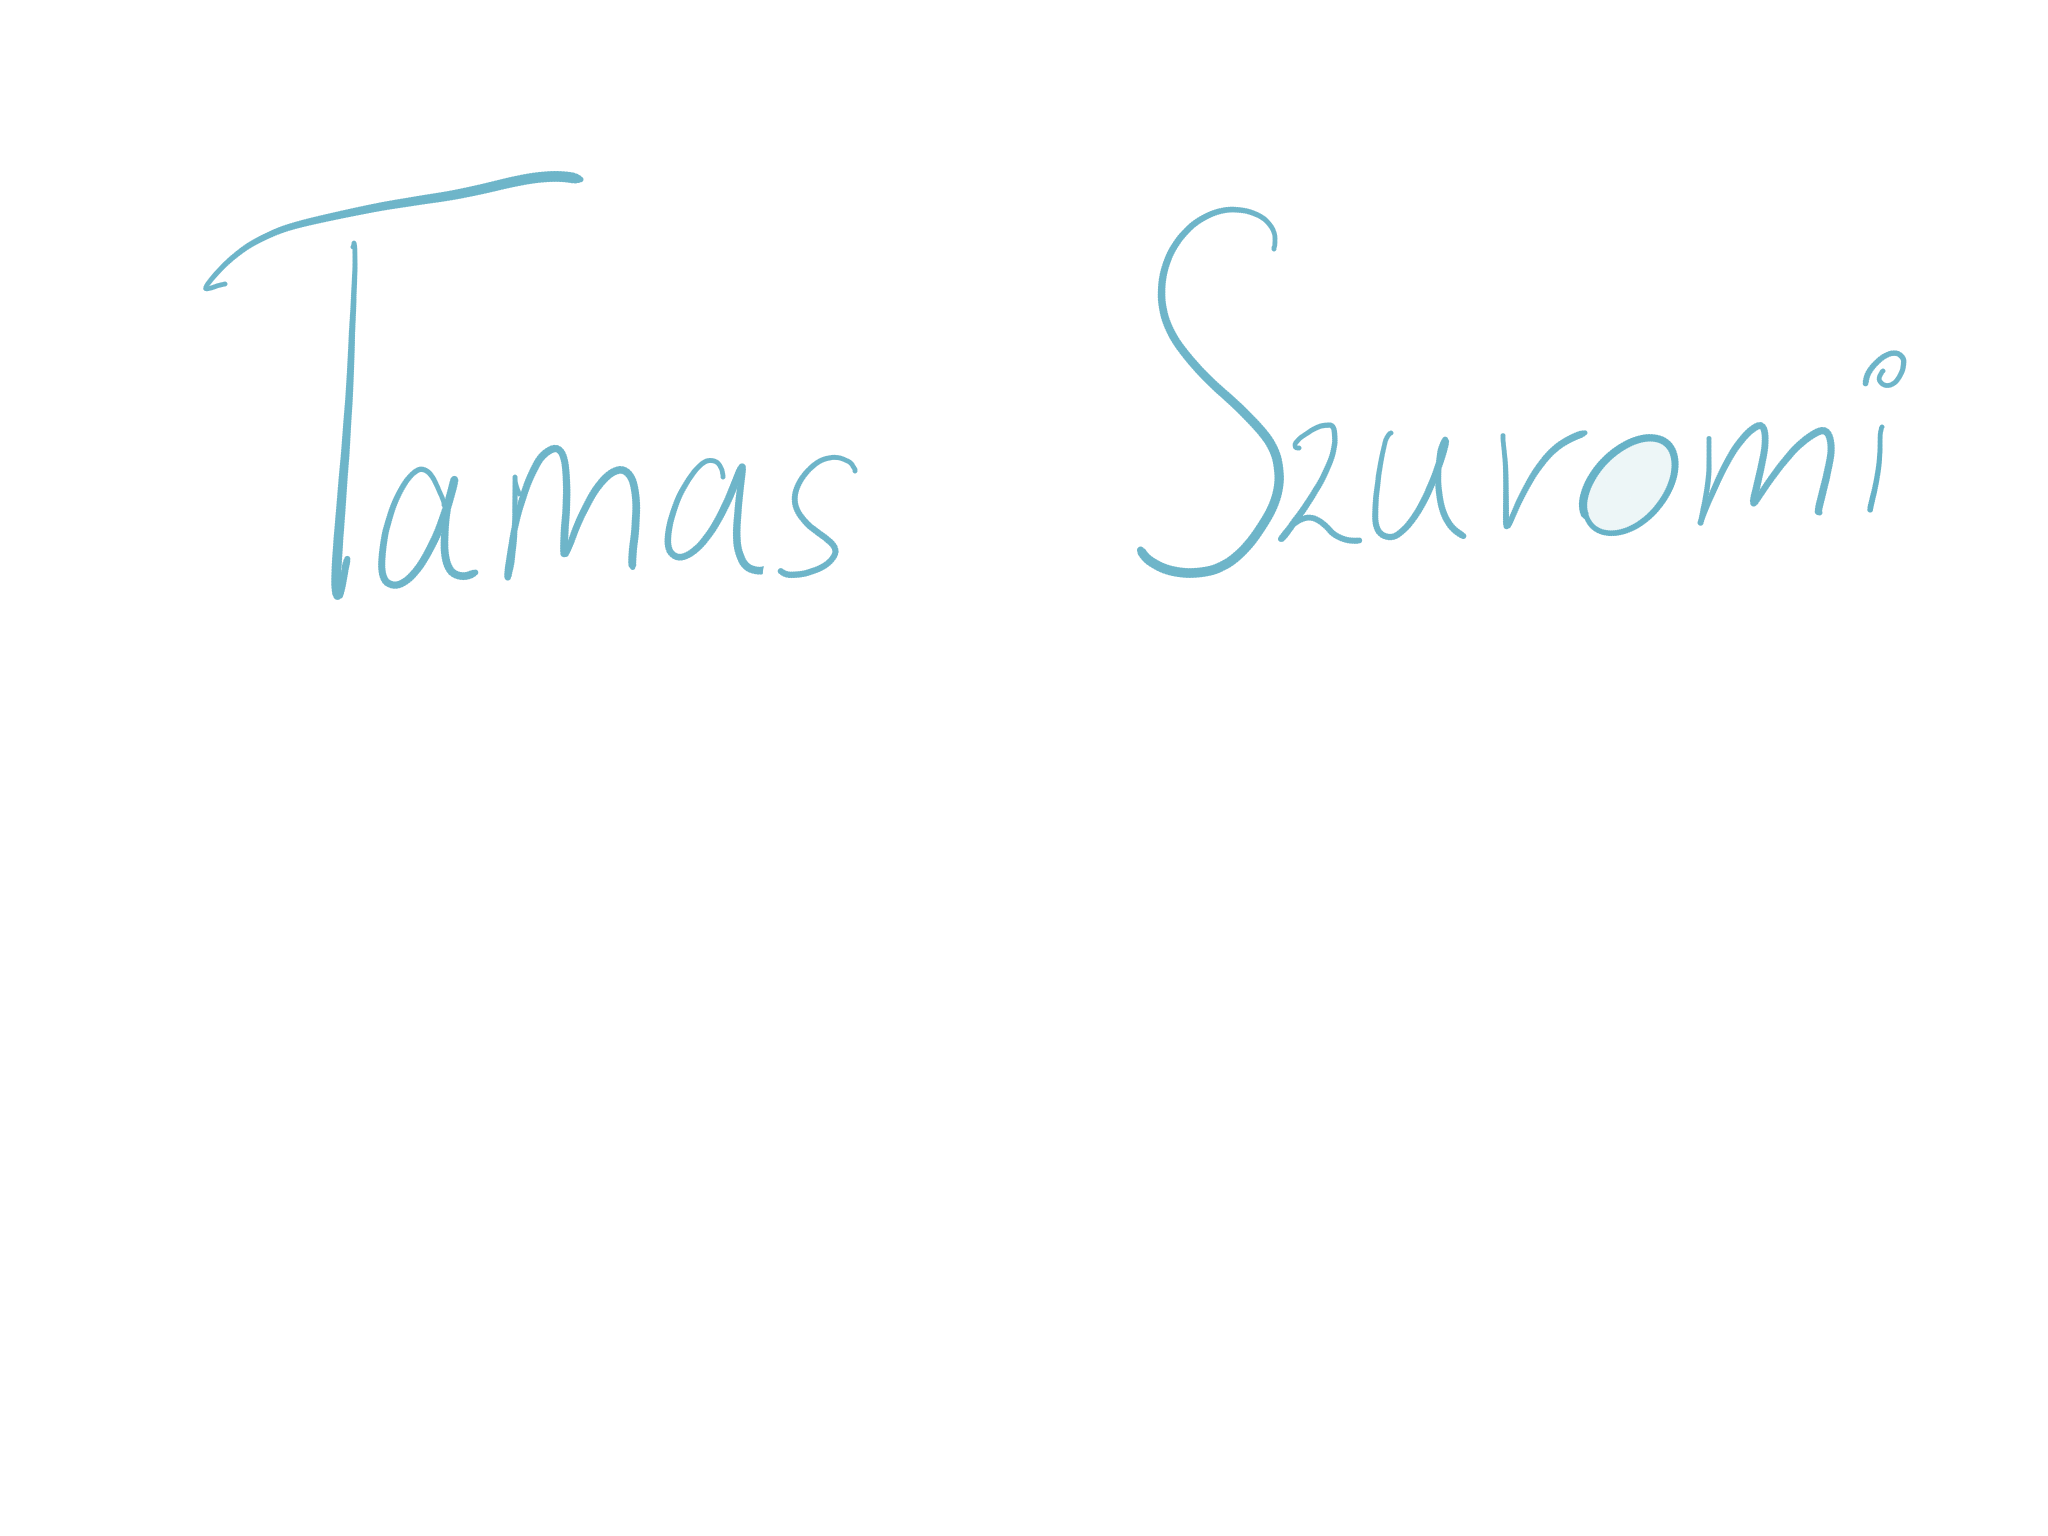 Tamas Szuromi